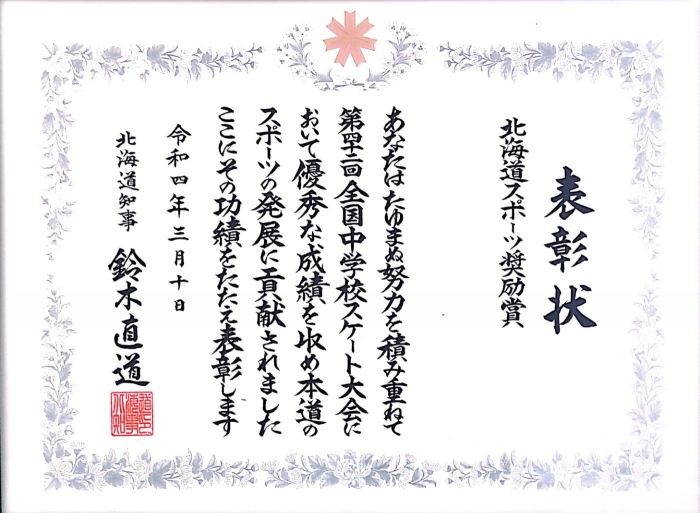 表彰状
北海道スポーツ奨励賞
あなたはたゆまぬ努力を積み重ねて
第四十二回全国中学校スケート大会に
おいて優秀な成績を収め本道の
スポーツの発展に貢献されました
ここにその功績をたたえ表彰します
令和四年三月十日
北海道知事 鈴木直道